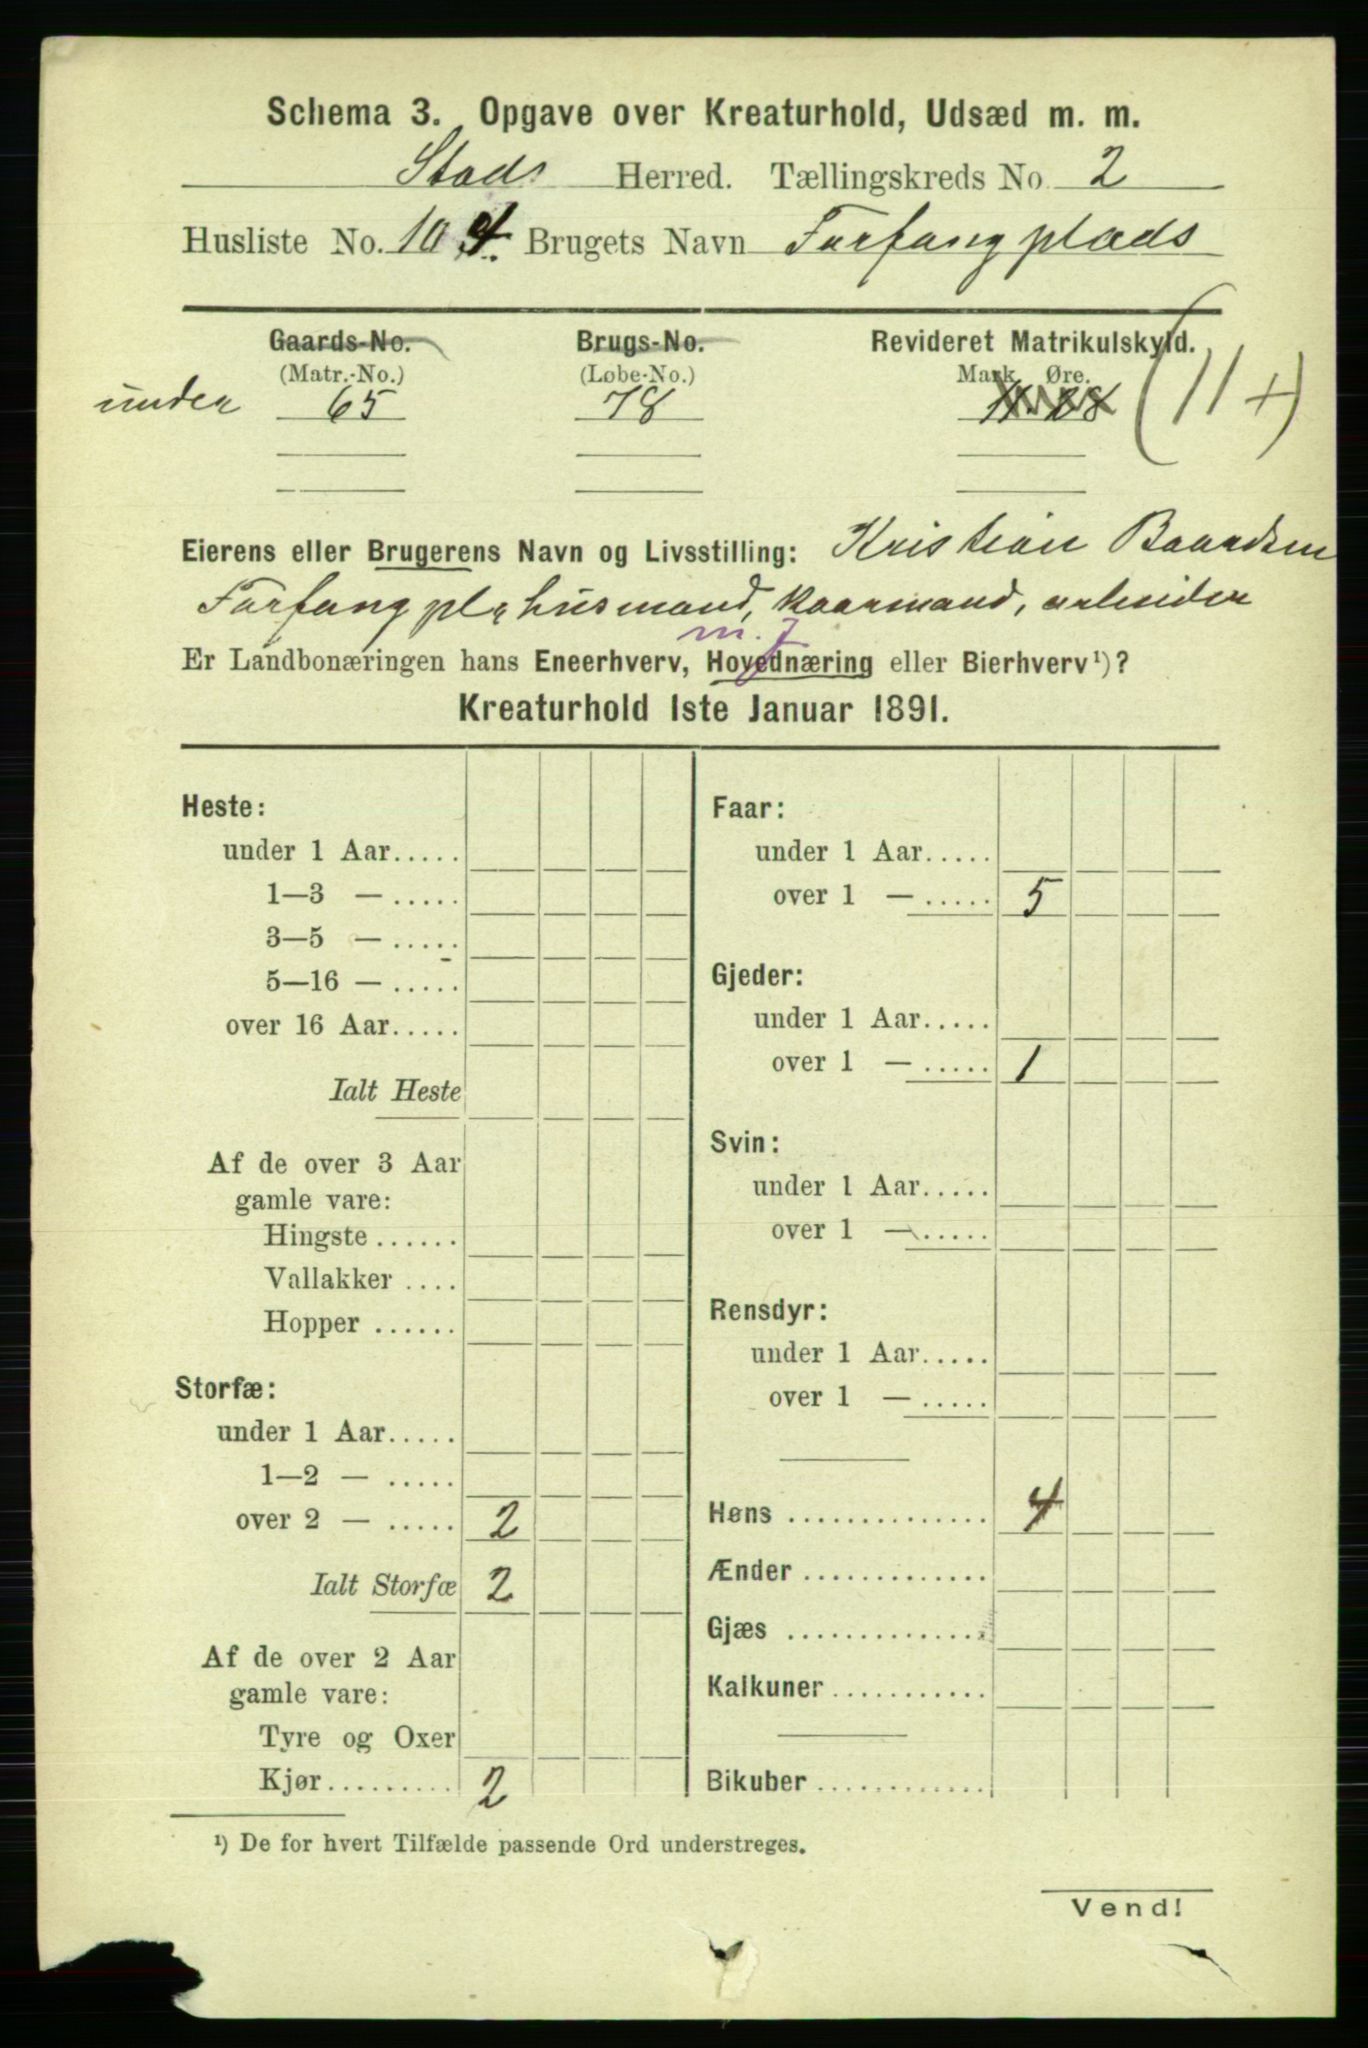 Schema 3. Opgave over Kreaturhold, Udsæd m. m.
Stods Herred. Tællingskreds No. 2
Husliste No. 104. Brugets Navn Farfangplads
Gaards-No. Brugs-No. Revideret Matrikulskyld.
(Matr.-No.) (Løbe-No.) Mark Øre.
under 65 78 (11+)
Eierens eller Brugerens Navn og Livsstilling: Kristian Baardsen
Farfangpl, husmand, kaarmand, arbeider
m. J
Er Landbonæringen hans Eneerhverv, Hovednæring eller Bierhverv¹)?
Kreaturhold 1ste Januar 1891.
Heste:
under 1 Aar.....
1—3 — .....
3—5 — .....
5—16 — .....
over 16 Aar.....
Ialt Heste
Af de over 3 Aar
gamle vare:
Hingste ......
Vallakker ....
Hopper ......
Storfæ:
under 1 Aar.....
1—2 — .....
over 2 — ..... 2
Ialt Storfæ 2
Af de over 2 Aar
gamle vare:
Tyre og Oxer
Kjør......... 2
Faar:
under 1 Aar.....
over 1 — ..... 5
Gjeder:
under 1 Aar.....
over 1 — ..... 1
Svin:
under 1 Aar.....
over 1 — .....
Rensdyr:
under 1 Aar.....
over 1 — .....
Høns .............. 4
Ænder .............
Gjæs ..............
Kalkuner ...........
Bikuber ............
¹) De for hvert Tilfælde passende Ord understreges.
Vend!